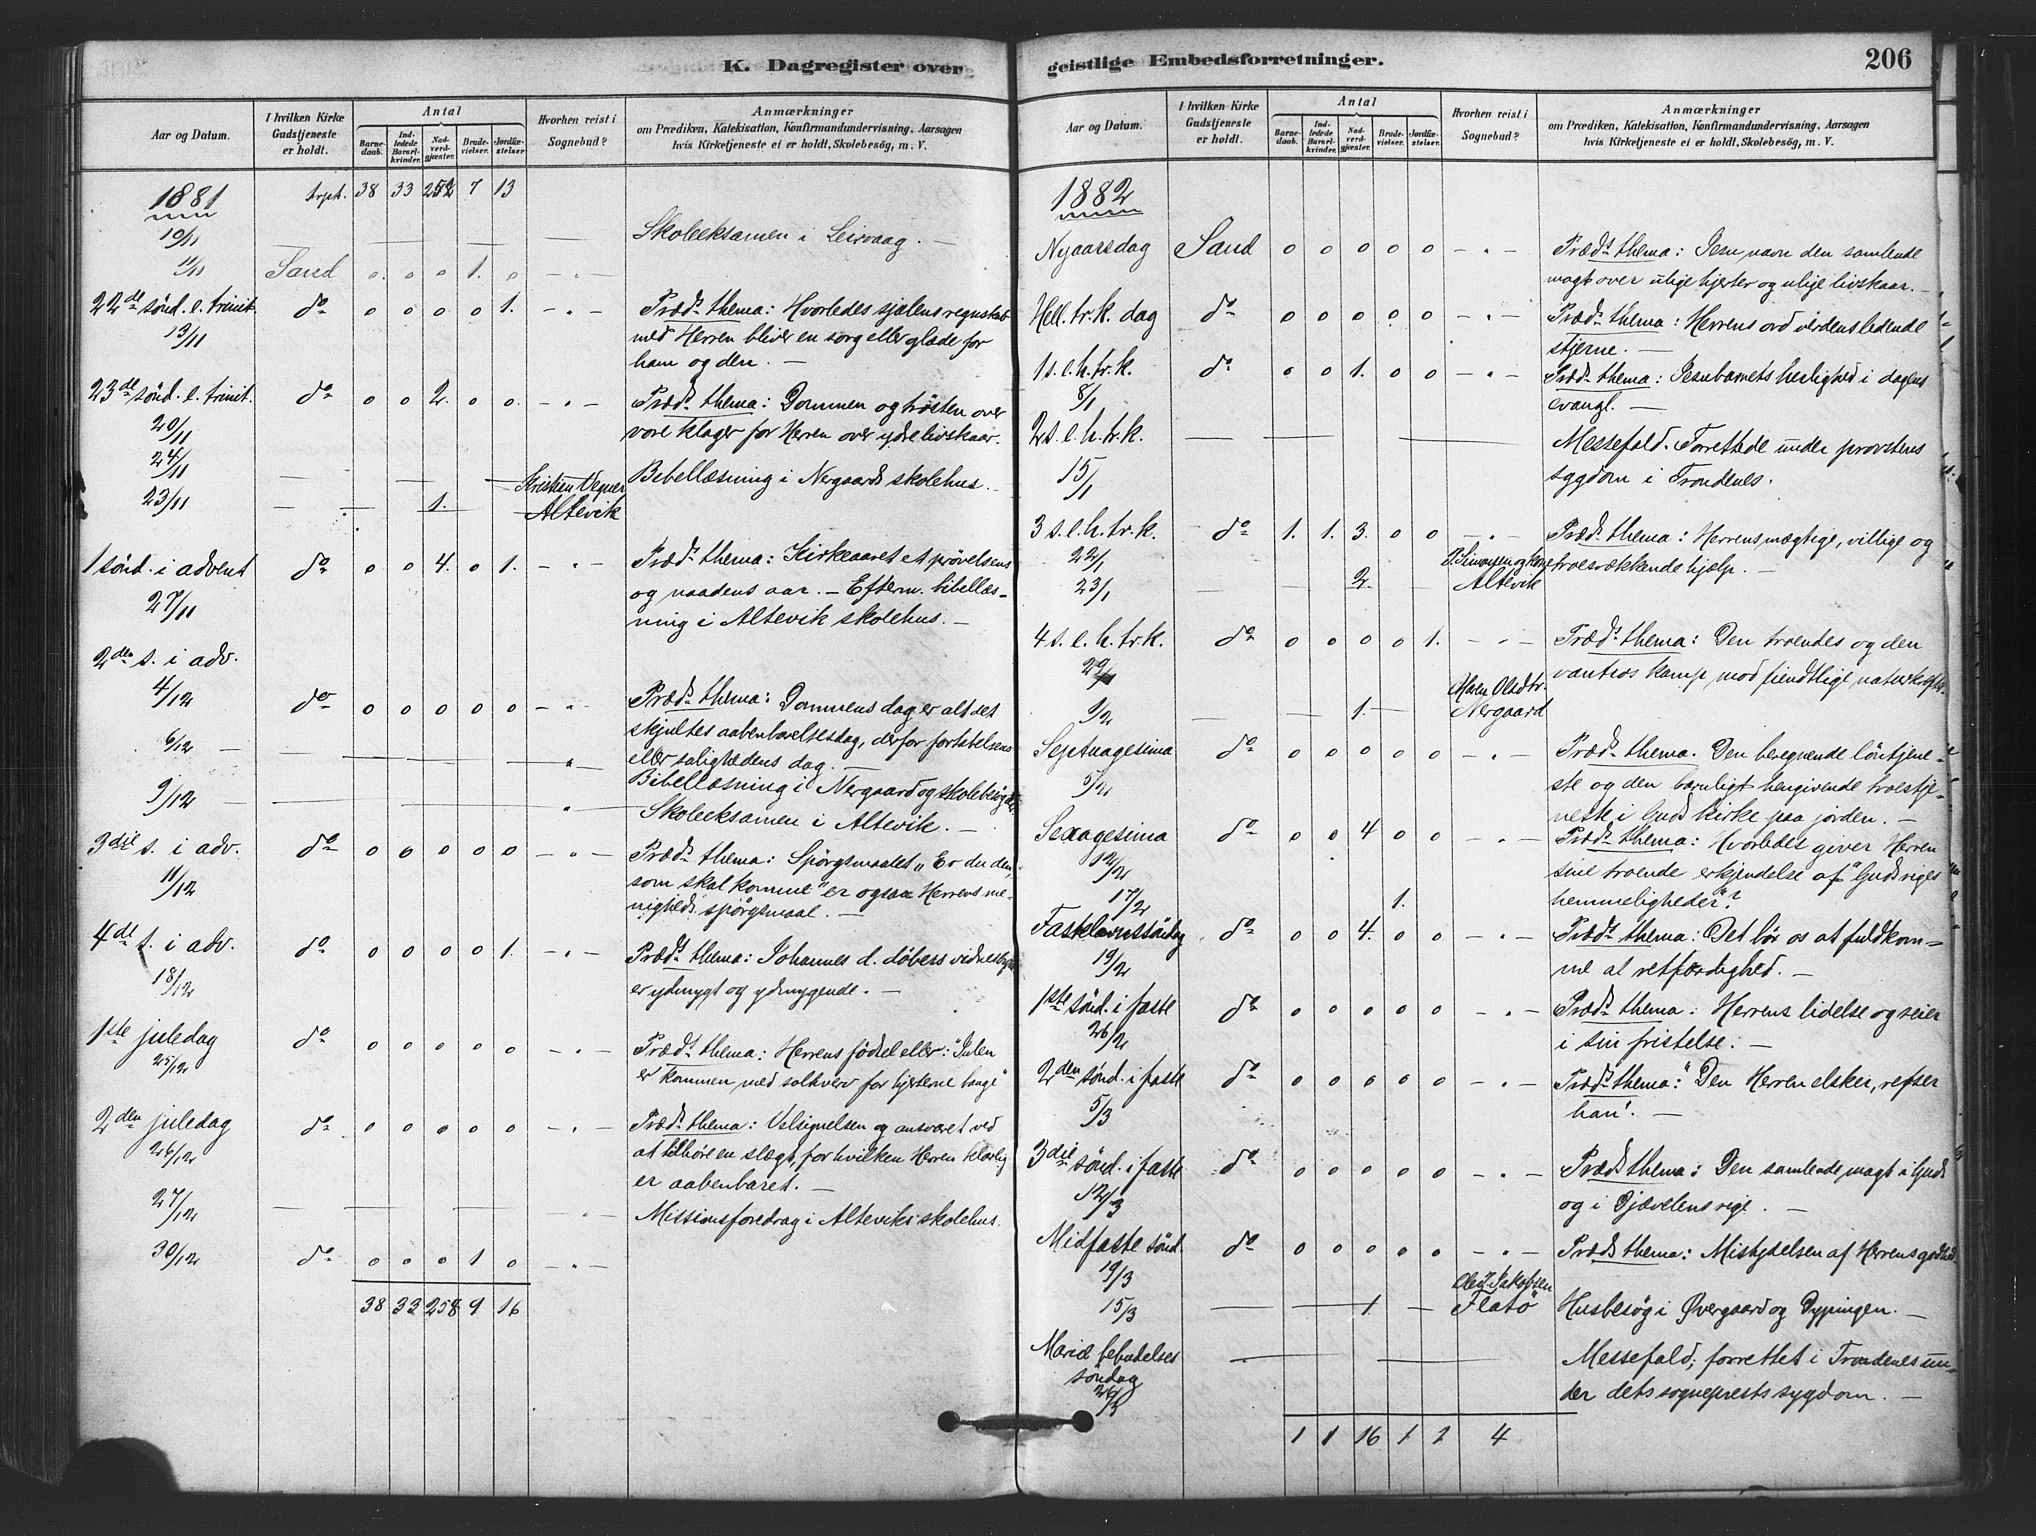 K. Dagregister over
Aar og Datum.
I hvilken Kirke Gudstjeneste er holdt.
Antal
Barnedaab.
Indledede Barselkvinder.
Nadverdgjæster.
Brudevielser.
Jordfæstelser
Hvorhen reist i Sognebud?
Anmærkninger
om Prædiken, Katekisation, Konfirmandundervisning, Aarsagen
hvis Kirketjeneste ei er holdt, Skolebesög, m. V.
1881 trpt. 38 33 252 7 13
10/11 — — — — — Skoleeksamen i Leirvaag. —
11/11 Sand 0. 0 0 0 1. 0 - " -
22de sönd. e. trinit. do 0 0 0. 0 1. - " - Præds thema: Hvorledes sjælens regnskab
13/11 med Herren bliver en sorg eller glæde for
ham og den. —
23de sönd. e. trinit. do 0 0 2. 0 0. - " - Præds thema: Dommen og trösten over
20/11 vore klager for Herren over ydre livskaar.
24/11 — — — — Bibellæsning i Nergaards skolehus. —
23/11 — — 1. — Kristian Vegner Altevik
1 sönd. i advent do 0 0 4. 0 1. - " - Præds thema: Kirkeaaret et prövelsens
27/11 og naadens aar. — Efterm. bibellæs-
ning i Altevik skolehus. —
2den s. i adv.
4/12 do 0 0 0 0 0 - " - Præds thema: Dommens dag er alt det
skjultes aabenbarelsesdag, derfor fortabelsens
eller salighedens dag. —
6/12 — — — — " — Bibellæsning i Nergaard og skolebesög der.
9/12 — — — — " — Skoleeksamen i Altevik. —
3die s. i adv. do 0 0 0 0 0 - " - Præds thema: Spörgsmaalet „Er du den,
11/12 som skal komme" er ogsaa Herrens me-
nigheds spörgsmaal. —
4de s. i adv. do 0 0 0 0 1. - " - Præds thema: Johannes d. döbers vidnesbyrd
18/12 er ydmygt og ydmygende. —
1ste juledag do 0 0 0 0 0 - " - Præds thema: Herrens födsel eller: "Julen
25/12 er kommen med solhverv for hjerterne bange"
2den juledag do 0 0 0 0 0 - " - Præds thema: Velsignelsen og ansvaret ved
26/12 at tilhöre en slægt, for hvilken Herren klarlig
er aabenbaret. —
27/12 — — — — " — Missionsforedrag i Alteviks skolehus.
30/12 do 0 0 0 1 0 - " -
38 33 258 9 16
geistlige Embedsforretninger.
206
Aar og Datum.
I hvilken Kirke Gudstjeneste er holdt.
Antal
Barnedaab.
Indledede Barselkvinder.
Nadverdgjæster.
Brudevielser.
Jordfæstelser
Hvorhen reist i Sognebud?
Anmærkninger
om Prædiken, Katekisation, Konfirmandundervisning, Aarsagen
hvis Kirketjeneste ei er holdt, Skolebesög, m. V.
1882
Nyaarsdag Sand 0 0 0 0 0 - " - Præds thema: Jesu navn den samlende
magt over ulige hjerter og ulige livskaar. —
Hell. tr. k. dag do 0 0 0 0 0 - " - Præds thema: Herrens ord verdens ledende
stjerne. —
1 s. e. h. tr. k. do 0 0 1. 0 0 - " - Præds thema: Jesubarnets herlighed i dagens
8/1 evangl. —
2 s. e. h. tr. k. — — — Messefald. Forrettede under provstens
15/1 sygdom i Trondenes.
3 s. e. h. tr. k. do 1. 1. 3. 0 0 - " - Præds thema: Herrens mægtige, villige og
22/1 troesvækkende hjælp. —
23/1 — — 2. — Simonsen og Altevik
4 s. e. h. tr. k. do 0 0 0 0 1. - " - Præds thema: Den troendes og den
29/1 vantros kamp mod fiendtlige naturkræfter.
9/2 — — 1. — Maren Olsdtr. Nergaard
Septuagesima do 0 0 0 0 0 - " - Præds thema. Den beregnende löntjene-
5/2 ste og den barnligt hengivende troestje-
neste i Guds kirke paa jorden. —
Sexagesima do 0 0 4 0 0 - " - Præds thema: Hvorledes giver Herren
12/2 sine troende erkjendelse af "Guds riges
17/2 1. hemmeligheder"?
Fastelavnssöndag do 0 0 4. 0 0 - " - Præds thema: Det bör os at fuldkom-
19/2 me al retfærdighed. —
1ste sönd. i faste do 0 0 0 0 0 - " - Præds thema: Herrens lidelse og seier
26/2 i sin fristelse. —
2den sönd. i faste do 0 0 0 0 0 - " - Præds thema: "Den Herren elsker, refser
5/3 han". —
3die sönd. i faste do 0 0 0 0 0 - " - Præds thema: Den samlende magt i Guds
12/3 og i Djævelens rige. —
Midfaste sönd. do 0 0 0 0 0 - " - Præds thema: Miskjendelsen af Herrens godhed
19/3
15/3 — — 1 — Ole Jakobsen Flatö Husbesög i Övergaard og Dypingen. —
Mariæ bebudelses — — — Messefald; forrettet i Trondenes un-
söndag der dets sogneprests sygdom. —
26/3
1 1 16 1 2 4